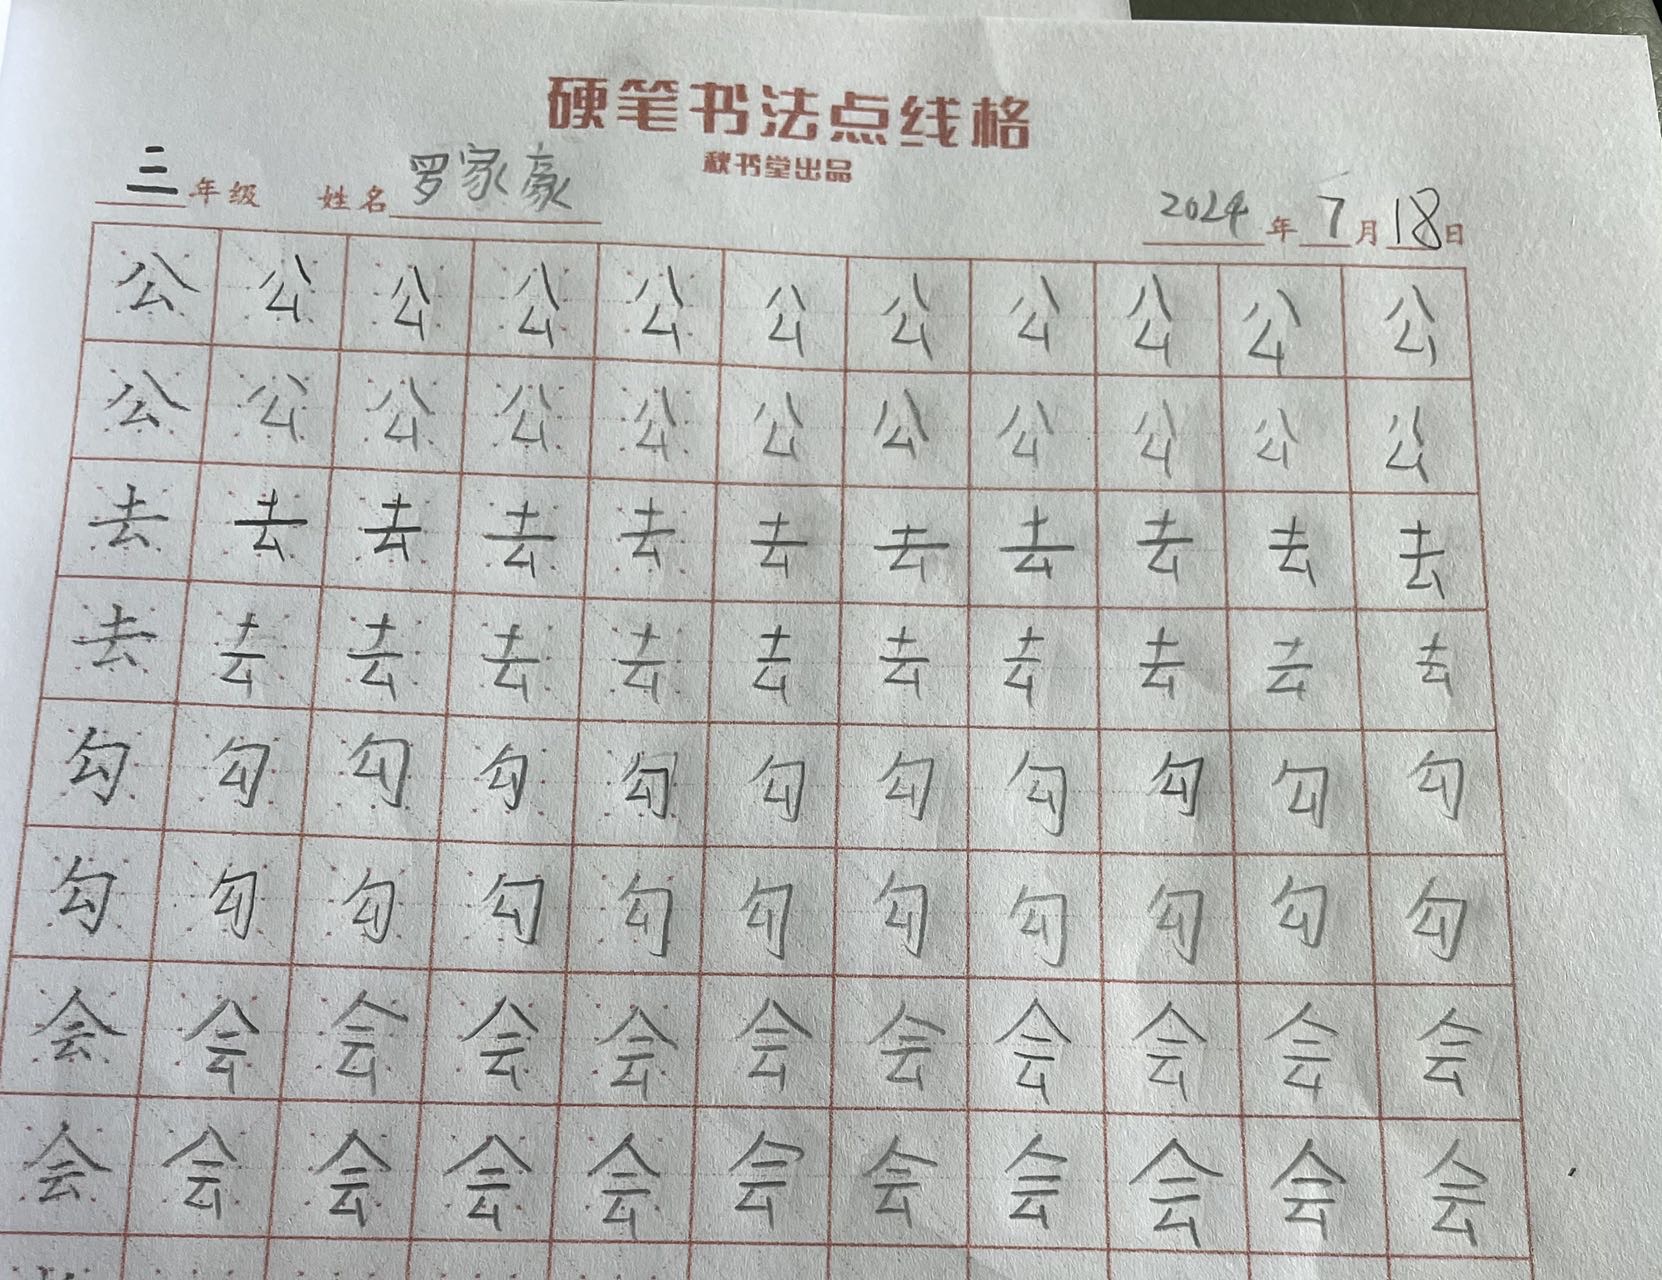 硬笔书法点线格
秋书堂出品
三年级 姓名 罗家豪 2024年7月18日
公公公公公公公公公公公
公公公公公公公公公公公
去去去去去去去去去去去
去去去去去去去去去去去
勾勾勾勾勾勾勾勾勾勾勾
勾勾勾勾勾勾勾勾勾勾勾
会会会会会会会会会会会
会会会会会会会会会会会